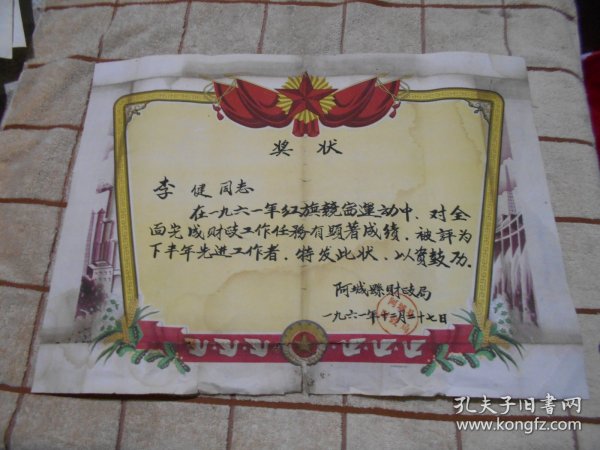 奖状
李健同志
在一九六一年红旗竞赛運动中、对全
面完成财政工作任務有顕著成绩、被評为
下半年先进工作者、特发此状、以资鼓励
阿城縣财政局
一九六一年十二月二十七日
孔夫子旧書网
www.kongfz.com